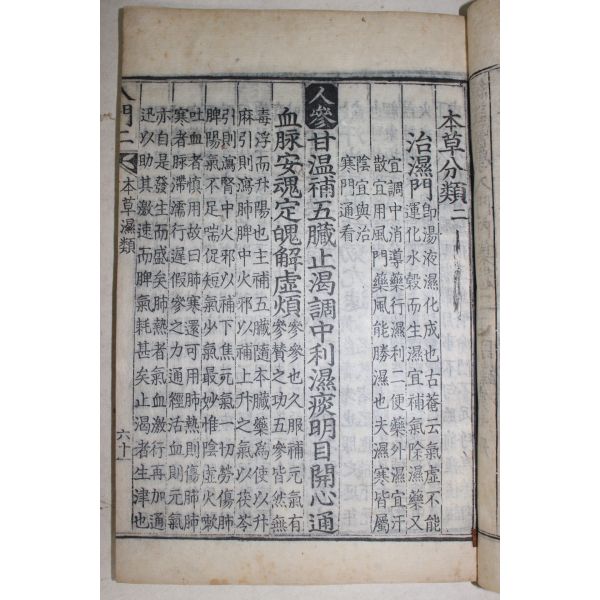 本草分類二
治濕門即湯液濕化成也古菴云氣虛不能
運化水穀而生濕宜補氣除濕藥又
宜調中消導藥行濕利二便藥外濕宜汗
散宜用風門藥風能勝濕也夫濕寒皆屬
陰宜與治
寒門通看
人參甘溫補五臟止渴調中利濕痰明目開心通
血脉安魂定魄解虛煩參參也久服補元氣有
參贊之功五參皆然無
毒浮而升陽也主補五臟隨本臟藥爲使以升
麻引則瀉肺脾中火邪以補上升之氣以茯苓
引則瀉腎中火邪以補下焦元氣一切勞傷肺
脾陽氣不足喘促短氣少氣最妙惟陰虛火嗽
吐血者慎用故曰肺寒還可用肺熱則傷肺肺
寒者脉滯濡行遲假參之力通經活血則元氣
亦自是發生而盛矣肺熱者氣血激行再加通
迅以助其激速而脾氣耗甚矣止渴者生津也
入門二
本草濕類
六十一